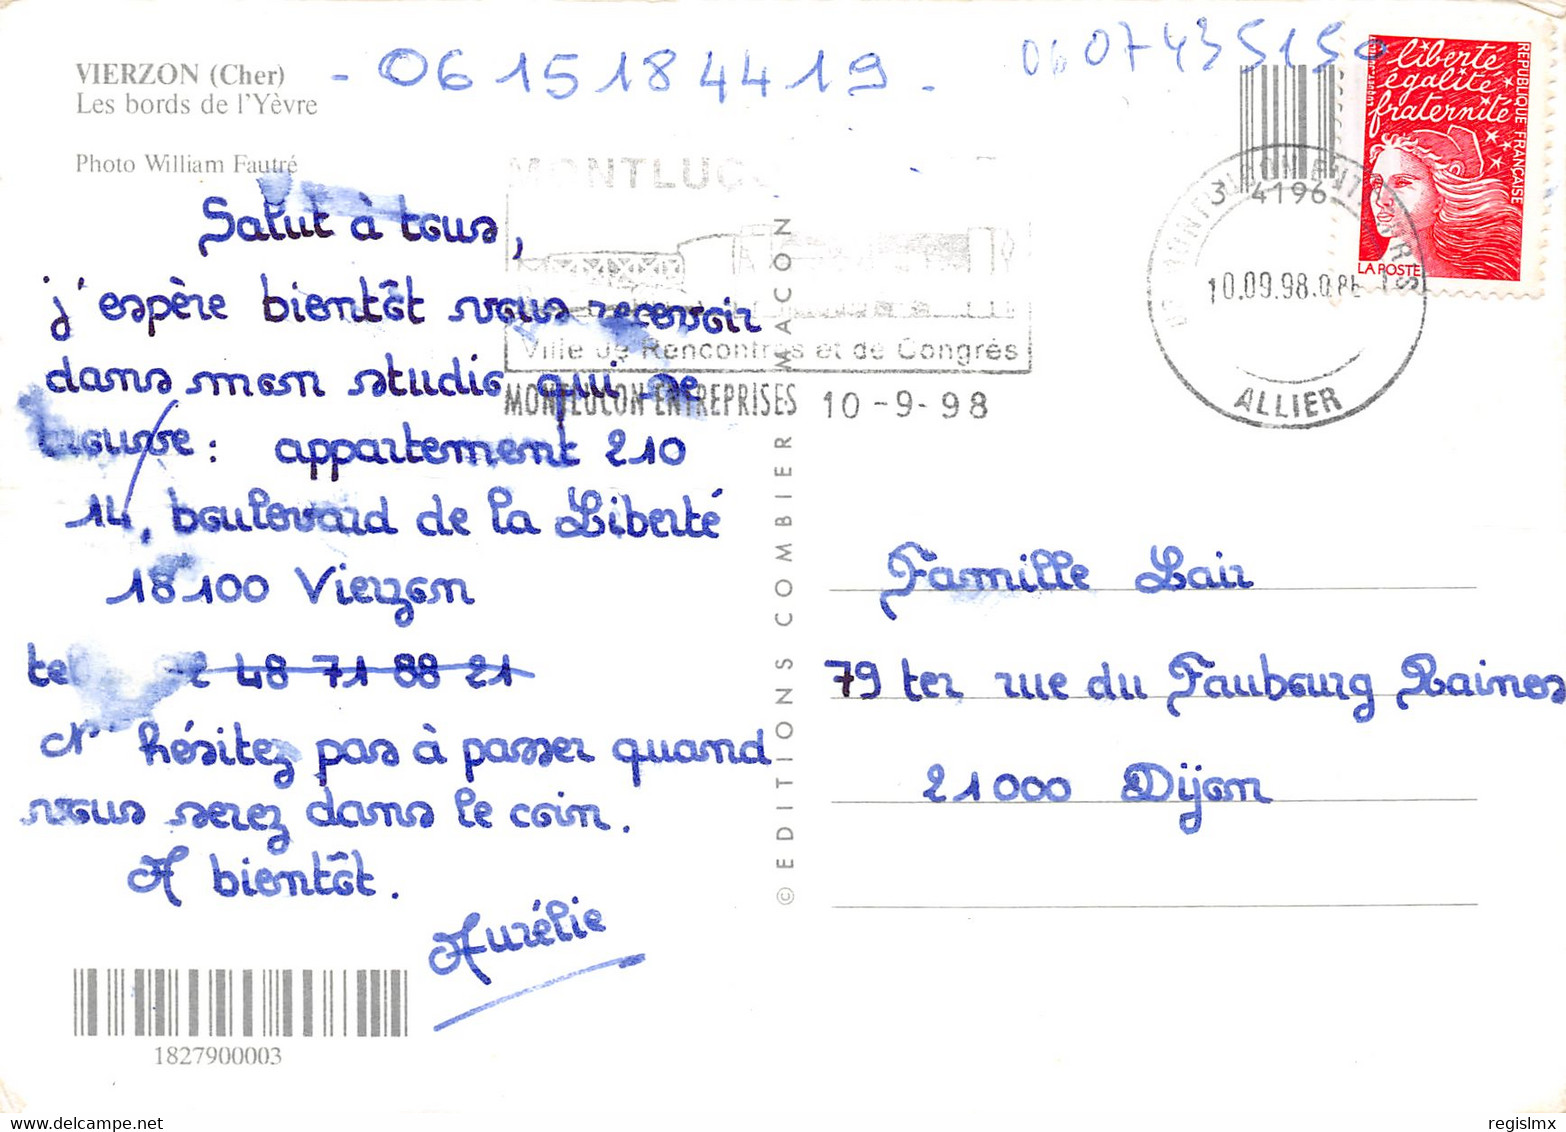 VIERZON (Cher)
Les bords de l'Yèvre
Photo William Fautré
- 06 15 18 44 19 -
06 07435150
liberté
égalité
fraternité
REPUBLIQUE FRANÇAISE
LA POSTE
3 4196
10.09.98
ALLIER
MONTLUC
Ville de Rencontres et de Congrès
MONTLUCON ENTREPRISES 10-9-98
Salut à tous,
j'espère bientôt vous recevoir
dans mon studio qui se
trouve : appartement 210
14, boulevard de la Liberté
18100 Vierzon
tel 2 48 71 88 21
N'hésitez pas à passer quand
vous serez dans le coin.
A bientôt.
Aurélie
1827900003
© EDITIONS COMBIER MACON
Famille Lair
79 ter rue du Faubourg Raines
21000 Dijon
regislmx